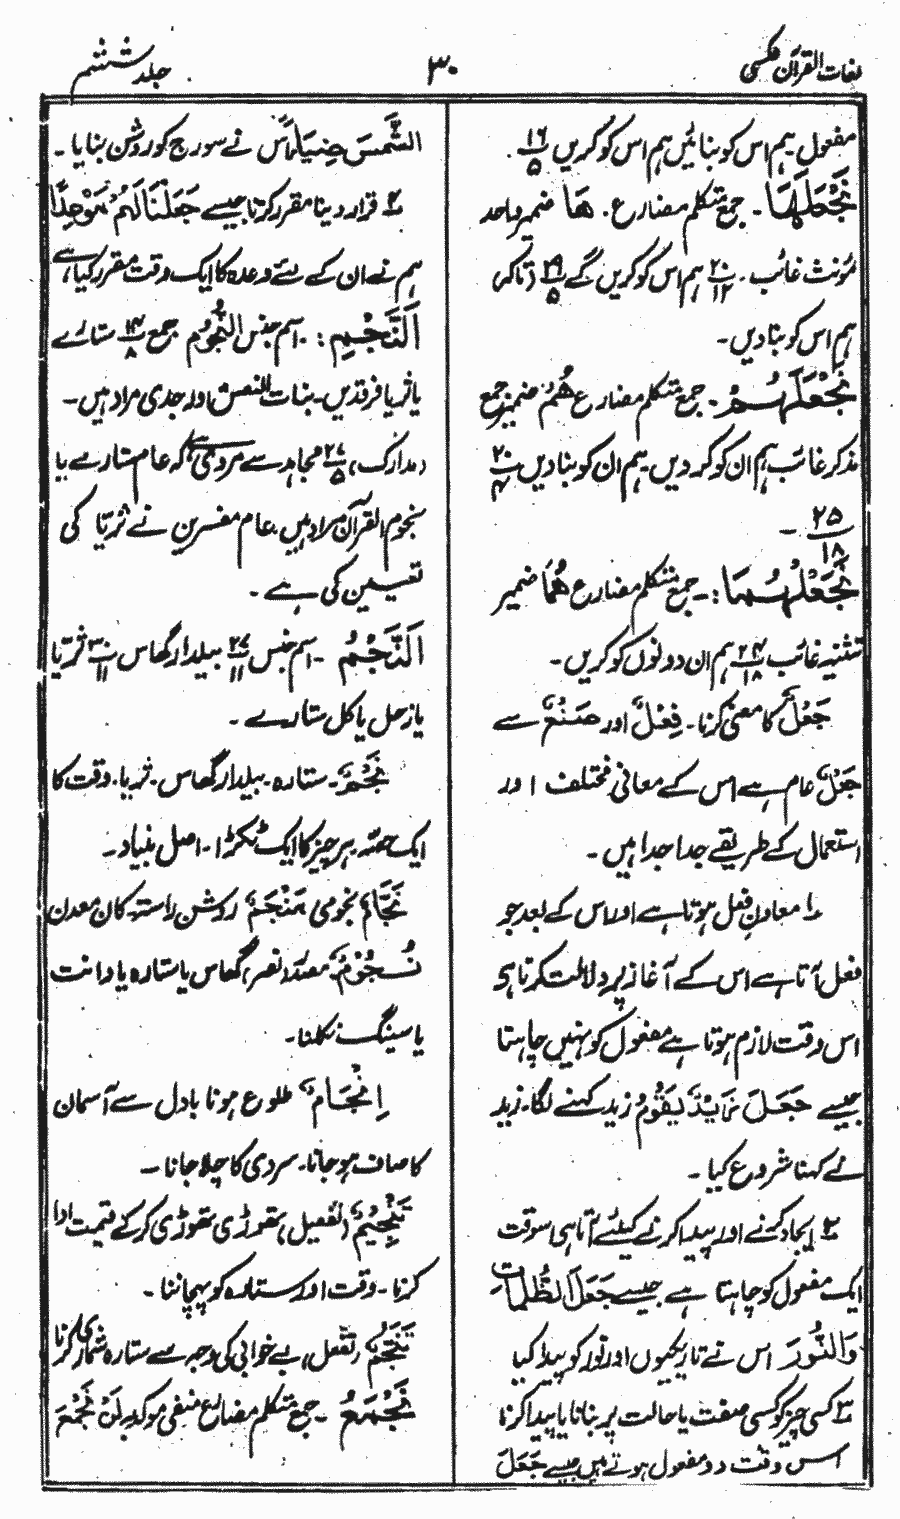 لغات القرآن عکسی ۳۰ جلد ششم
مفعول۔ ہم اس کو بنائیں ہم اس کو کریں ۱۶/۵۔
نَجْعَلَهَا۔ جمع متکلم مضارع۔ هَا ضمیر واحد
مؤنث غائب۔ ۲۰/۱۲ ہم اس کو کریں گے ۲۹/۵ (تاکہ)
ہم اس کو بنا دیں۔
نَجْعَلَهُمْ۔ جمع متکلم مضارع هُمْ ضمیر جمع
مذکر غائب ہم ان کو کر دیں۔ ہم ان کو بنا دیں ۲۰/۴
۲۵/۱۸۔
نَجْعَلْهُمَا:۔ جمع متکلم مضارع هُمَا ضمیر
تثنیہ غائب ۲۴/۱۸ ہم ان دونوں کو کریں۔
جَعْلٌ کا معنیٰ کرنا۔ فِعْلٌ اور صَنْعٌ سے
جَعْلٌ عام ہے اس کے معانی مختلف اور
استعمال کے طریقے جدا جدا ہیں۔
۱؎ معاون فعل ہوتا ہے اور اس کے بعد جو
فعل آتا ہے اس کے آغاز پر دلالت کرتا ہی
اس وقت لازم ہوتا ہے مفعول کو نہیں چاہتا
جیسے جَعَلَ زَيْدٌ يَقُوْمُ زید کہنے لگا۔ زید
نے کہنا شروع کیا۔
۲؎ ایجاد کرنے اور پیدا کرنے کیلئے آتا ہی اسوقت
ایک مفعول کو چاہتا ہے جیسے جَعَلَ الظُّلُمَاتِ
وَالنُّوْرَ اس نے تاریکیوں اور نور کو پیدا کیا
۳؎ کسی چیز کو کسی صفت یا حالت پر بنانا یا پیدا کرنا
اس وقت دو مفعول ہوتے ہیں جیسے جَعَلَ
الشَّمْسَ ضِيَاءً اس نے سورج کو روشن بنایا۔
۴؎ قرار دینا مقرر کرنا جیسے جَعَلْنَا لَهُمْ مَوْعِدًا
ہم نے ان کے لئے وعدہ کا ایک وقت مقرر کیا ہے
اَلنَّجْمِ:۔ اسم جنس النُّجُوْمُ جمع ۱۴/۸ ستارے
یا ثریا فرقدین۔ بنات النعش اور جدی مراد ہیں۔
(مدارک) ۲۷/۵ مجاہد سے مروی ہے کہ عام ستارے یا
نجوم القرآن مراد ہیں۔ عام مفسرین نے ثریّا کی
تعیین کی ہے۔
اَلنَّجْمُ۔ اسم جنس ۲۷/۱۱ بیلدار گھاس ۳۰/۱۱ ثریّا
یا زحل یا کل ستارے۔
نَجْمٌ۔ ستارہ۔ بیلدار گھاس۔ ثریا۔ وقت کا
ایک حصّہ۔ ہر چیز کا ایک ٹکڑا۔ اصل بنیاد۔
نَجَّامٌ نجومی مَنْجَمٌ روشن راستہ۔ کان معدن
نُجُوْمٌ مصدر (نصر) گھاس یا ستارہ یا دانت
یا سینگ نکلنا۔
اِنْجَامٌ طلوع ہونا بادل سے آسمان
کا صاف ہو جانا۔ سردی کا چلا جانا۔
تَنْجِيْمٌ (تفعیل) تھوڑی تھوڑی کر کے قیمت ادا
کرنا۔ وقت اور ستارہ کو پہچاننا۔
تَنَجُّمٌ (تفعل) بے خوابی کی وجہ سے ستارہ شماری کرنا
نَجْمَعَ۔ جمع متکلم مضارع منفی موکد بہ لن نَجْمَعَ